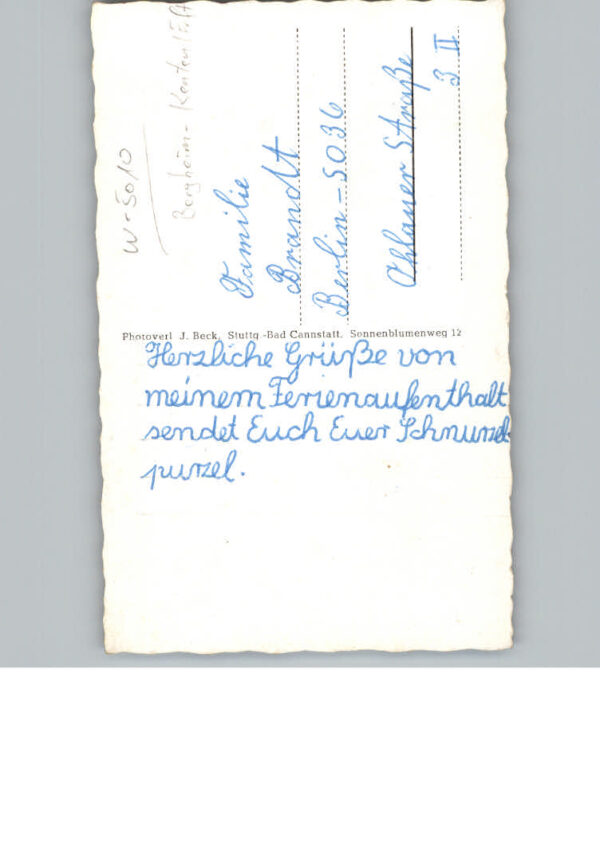 W-5010
Bergheim-Kenten/Erft
Familie
Brandt
Berlin-SO36
Ohlauer Straße
3 II
Photoverl J. Beck, Stuttg.-Bad Cannstatt. Sonnenblumenweg 12
Herzliche Grüße von
meinem Ferienaufenthalt
sendet Euch Euer Schnurzel-
purzel.